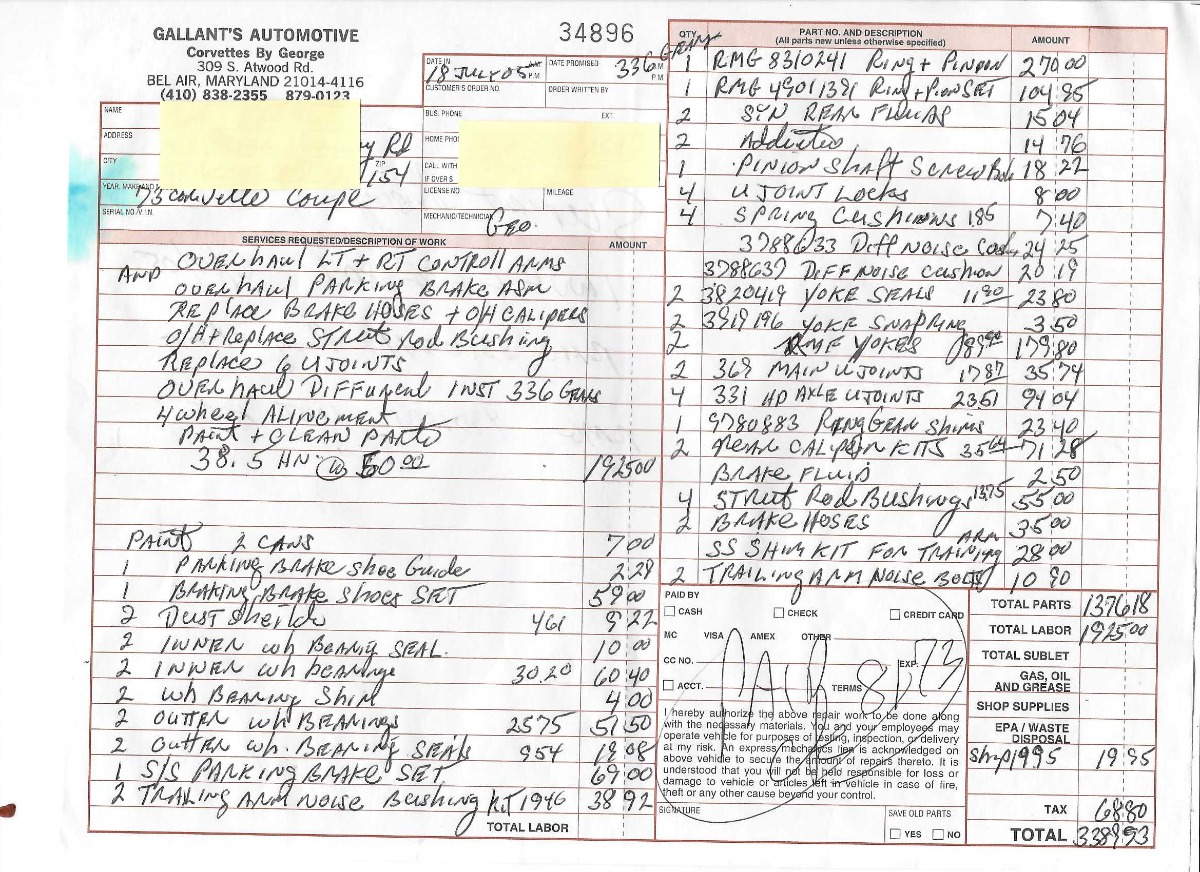 GALLANT'S AUTOMOTIVE
Corvettes By George
309 S. Atwood Rd.
BEL AIR, MARYLAND 21014-4116
(410) 838-2355 879-0123
34896
DATE IN 18 JULY 08 A.M. P.M.
DATE PROMISED 336 GEAR A.M. P.M.
CUSTOMER'S ORDER NO.
ORDER WRITTEN BY
NAME
BUS. PHONE EXT.
ADDRESS Rd
HOME PHO
CITY ZIP 154
CALL WITH
IF OVER $
YEAR, MAKE AND 73 Corvette Coupe
LICENSE NO
MILEAGE
SERIAL NO./V.I.N.
MECHANIC/TECHNICIAN Geo.
SERVICES REQUESTED/DESCRIPTION OF WORK AMOUNT
OVERHAUL LT + RT CONTROLL ARMS
AND OVERHAUL PARKING BRAKE ASM
REPLACE BRAKE HOSES + O/H CALIPERS
O/H + Replace Street Rod Bushing
REPLACE 6 U JOINTS
OVERHAUL DIFFURENT INST 336 GEARS
4 wheel ALINEMENT
PAINT + CLEAN PARTS
38.5 HR @ 50 00 1925 00
PAINT 2 CANS 7 00
1 PARKING BRAKE SHOE Guide 2 29
1 BRAKING BRAKE SHOES SET 59 00
2 Dust Sheilds 461 9 22
2 INNER wh BEARING SEAL. 10 00
2 INNER wh bearings 30.20 60 40
2 wh BEARING Shim 4 00
2 OUTTER wh BEARINGS 2575 51 50
2 OUTTER wh. BEARING SEALS 954 19 08
1 S/S PARKING BRAKE SET 69 00
2 TRAILING ARM NOISE Bushing KIT 1946 38 92
TOTAL LABOR
QTY. PART NO. AND DESCRIPTION
(All parts new unless otherwise specified) AMOUNT
1 RMG 8310241 RING + PINION 270 00
1 RMG 49011391 RING + PION SET 104 95
2 SYN REAR FLUIDS 15 04
2 Addictes 14 76
1 PINION Shaft Screw Bolt 18 22
4 U JOINT LOCKS 8 00
4 SPRING CUSHIONS 185 7 40
3788633 Diff NOISE Cush 24 25
3788637 DIFF NOISE CUSHION 20 19
2 3820419 YOKE SEALS 11 90 23 80
2 3919196 YOKE SNAPRING 3 50
2 RMF YOKES 89 90 179 80
2 369 MAIN U JOINTS 17 87 35 74
4 331 HD AXLE U JOINTS 23 51 94 04
1 9780883 RING GEAR SHIMS 23 40
2 REAR CALIPER KITS 35 64 71 28
BRAKE FLUID 2 50
4 STREET Rod Bushings 13 75 55 00
2 BRAKE HOSES 35 00
SS SHIM KIT FOR TRAINING ARM 28 00
2 TRAILING ARM NOISE BOLTS 10 90
PAID BY
CASH CHECK CREDIT CARD
MC VISA AMEX OTHER
CC NO. EXP.
ACCT. TERMS
PAID 8173
I hereby authorize the above repair work to be done along
with the necessary materials. You and your employees may
operate vehicle for purposes of testing, inspection, or delivery
at my risk. An express mechanics lien is acknowledged on
above vehicle to secure the amount of repairs thereto. It is
understood that you will not be held responsible for loss or
damage to vehicle or articles left in vehicle in case of fire,
theft or any other cause beyond your control.
SIGNATURE
SAVE OLD PARTS
YES NO
TOTAL PARTS 1376 18
TOTAL LABOR 1925 00
TOTAL SUBLET
GAS, OIL
AND GREASE
SHOP SUPPLIES
EPA / WASTE
DISPOSAL
Shop 1995 19 95
TAX 68 80
TOTAL 3389 93